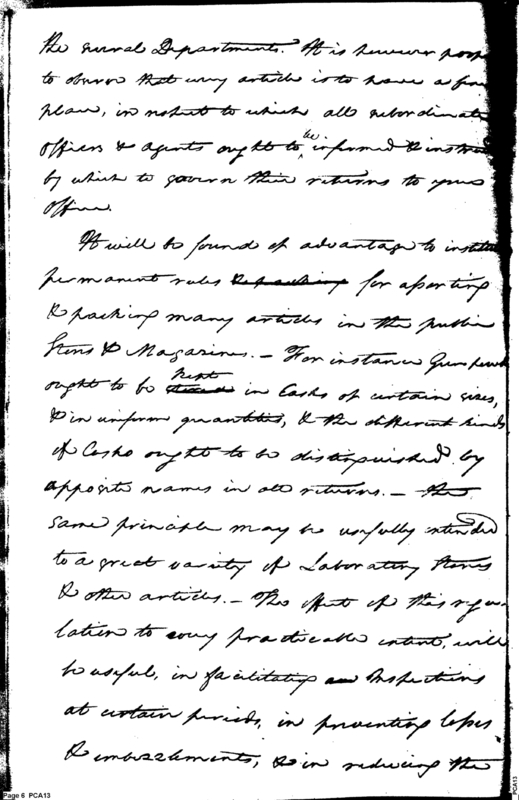 the several Departments. It is however proper
to observe that every article is to have a fixed
place, in respect to which all subordinate
officers & agents ought to be informed & instructed
by which to govern their returns to your
office.
It will be found of advantage to institute
permanent rules & packing for assorting
& packing many articles in the public
Stores & Magazines. — For instance Gun powder
ought to be kept in Casks of certain sizes,
& in uniform quantities, & the different kinds
of Casks ought to be distinguished by
apposite names in all returns. — The
same principle may be usefully extended
to a great variety of Laboratory Stores
& other articles. — The effect of this regu-
lation to every practicable extent, will
be useful, in facilitating Inspections
at certain periods, in preventing losses
& embezzlements, & in reducing the
Page 6 PCA13
PCA13